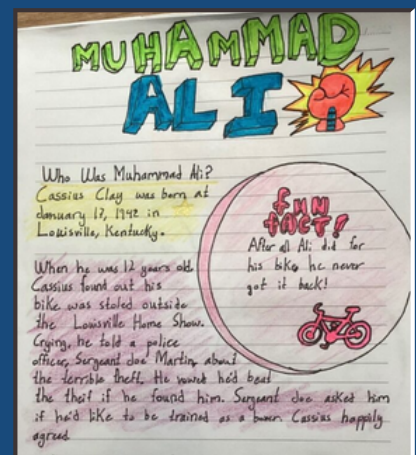 MUHAMMAD
ALI
Who Was Muhammad Ali?
Cassius Clay was born at
January 17, 1942 in
Louisville, Kentucky.
fun
fact!
After all Ali did for
his bike, he never
got it back!
When he was 12 years old
Cassius found out his
bike was stoled outside
the Louisville Home Show.
Crying, he told a police
officer, Sergeant Joe Martin, about
the terrible theft. He vowed he'd beat
the theif if he found him. Sergeant Joe asked him
if he'd like to be trained as a boxer. Cassius happily
agreed.